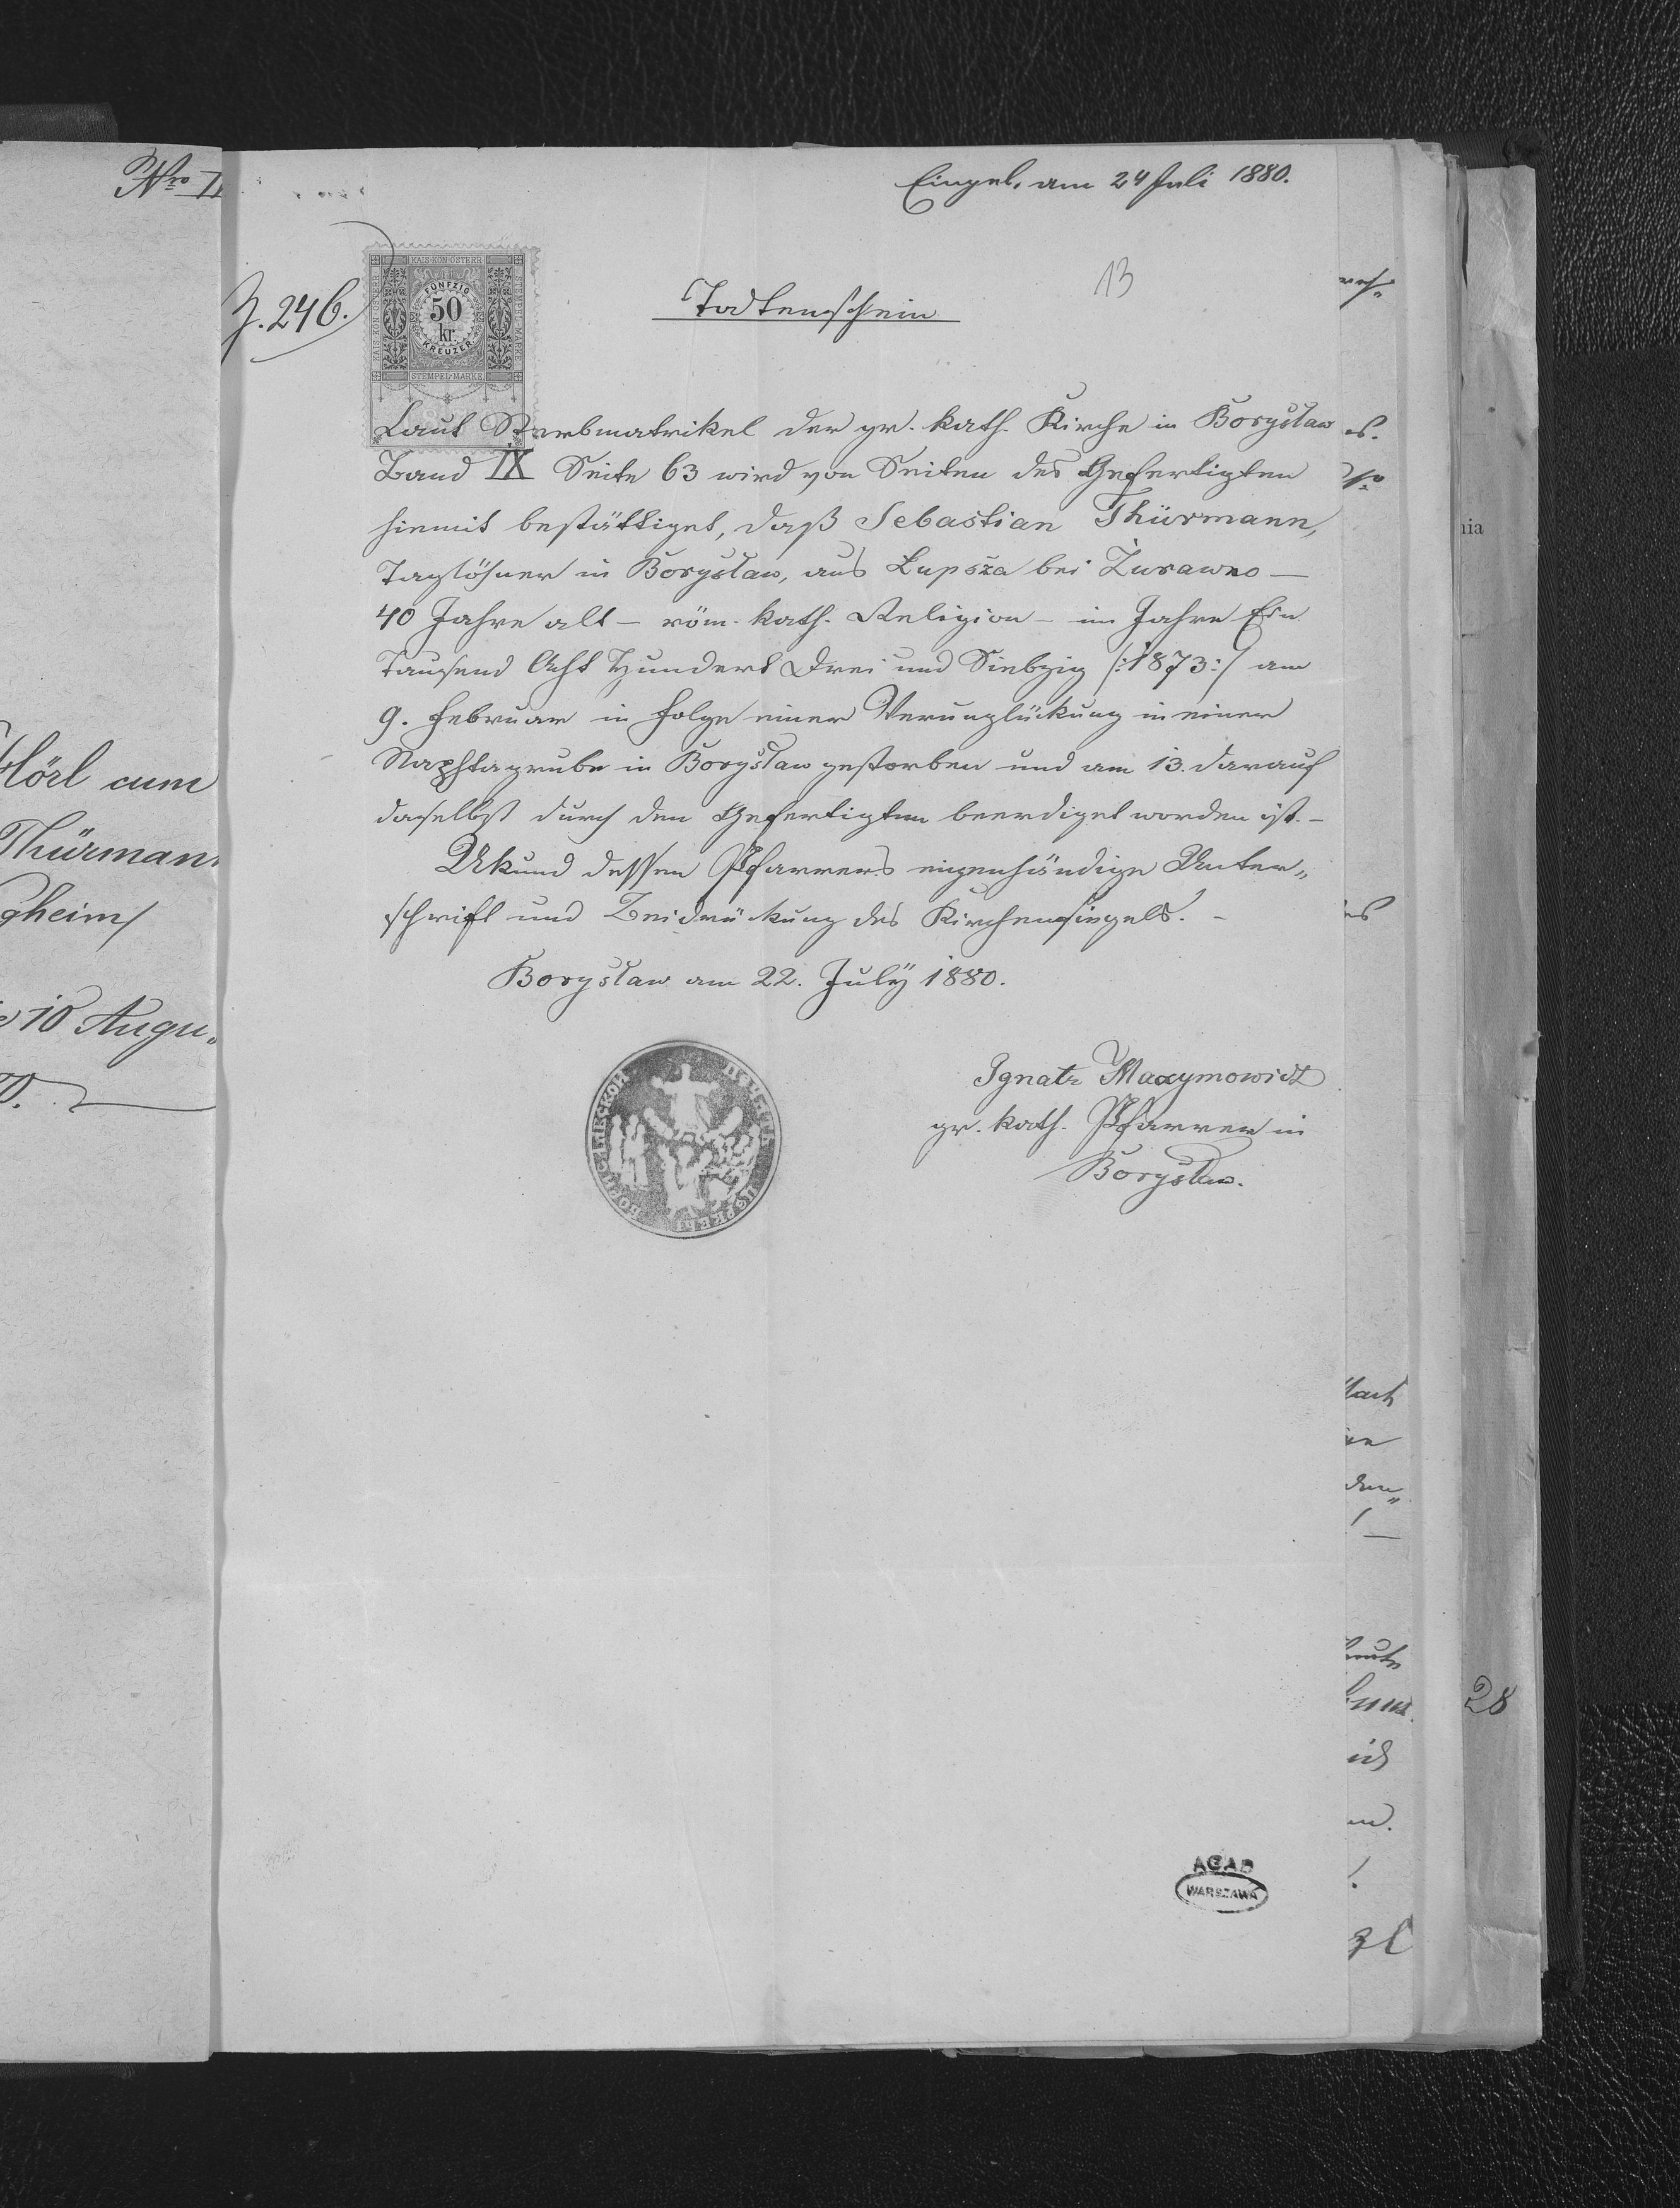 Nro
Eingel. am 24 Juli 1880.
13
Z. 246.
KAIS·KON·ÖSTERR·
STEMPEL-MARKE
FÜNFZIG
50
kr.
KREUZER
STEMPEL-MARKE
Todtenschein
Laut Sterbmatrikel der gr. kath. Kirche in Borysław
Band IX Seite 63 wird von Seiten des Gefertigten
hiemit bestättiget, daß Sebastian Thürmann,
Taglöhner in Borysław, aus Łupsza bei Żurawno —
40 Jahre alt — röm. kath. Religion — im Jahre Ein
Tausend Acht Hundert Drei und Siebzig /:1873:/ am
9. Februar in Folge einer Verunglückung in einer
Naphtagrube in Borysław gestorben und am 13. darauf
daselbst durch den Gefertigten beerdiget worden ist. —
Ukund dessen Pfarrers eigenhändige Unter„
schrift und Beidrückung des Kirchensiegels. —
Borysław am 22. July 1880.
Ignatz Maxymowicz
gr. kath. Pfarrer in
Borysław.
Hörl cum
Thürman
gheim/
10 Augu
nia
28
AGAD
WARSZAWA